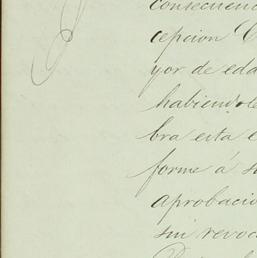 consecuenc
cepcion C
yor de eda
habiendole
bra esta e
forme á s
aprobacio
sin revoc